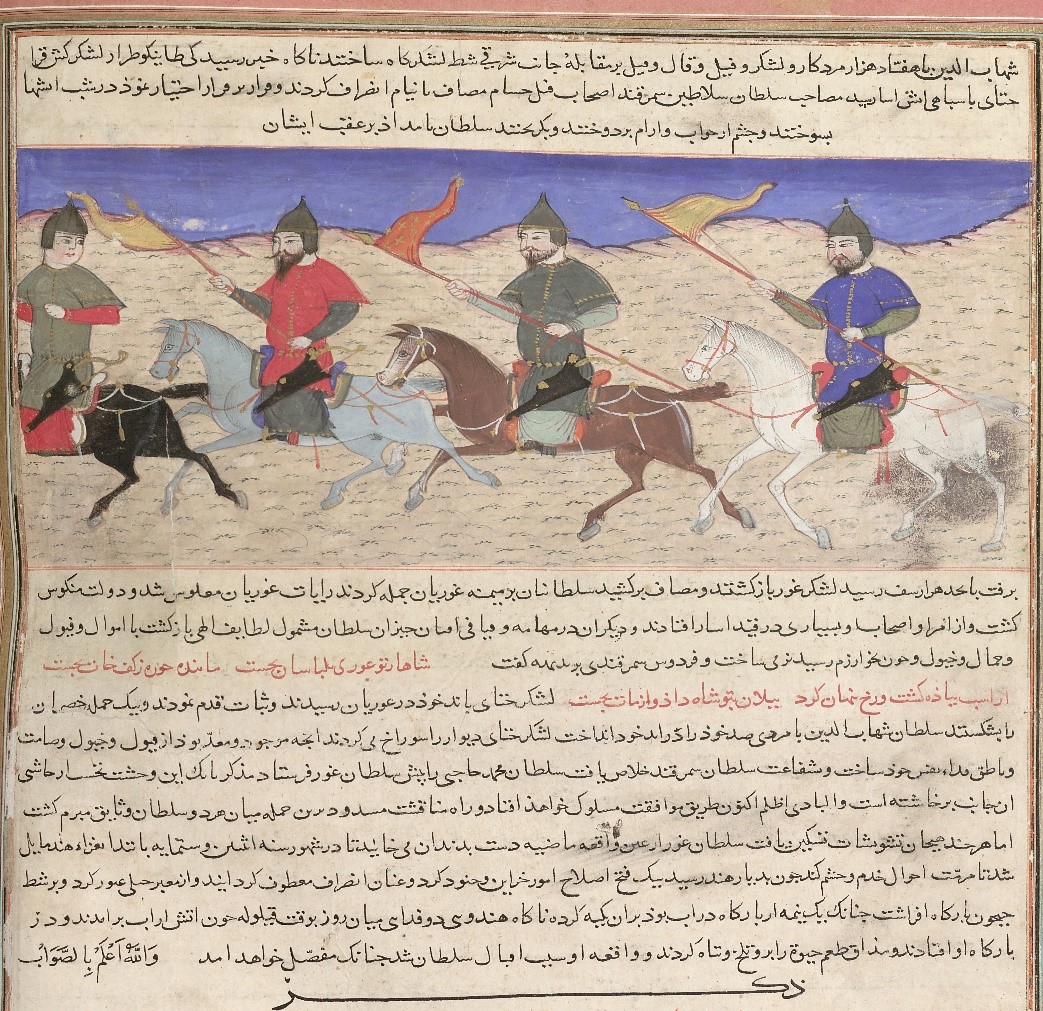 شهاب الدین با هفتاد هزار مرد کار و لشکر و فیل و قال و قیل بر مقابلهٔ جانب شرقی شط لشکرگاه ساختند ناکاه خبر رسید کی طاینکو طراز لشکر کش قرا
ختای با سپاهی اتش اسا رسید مصاحب سلطان سلاطین سمرقند اصحاب فیل حسام مصاف با نیام انصراف کردند و قرار بر فرار اختیار غوذ در شب اشها
بسوختند و چشم از خواب و ارام بردوختند و بکریختند سلطان بامداذ بر عقب ایشان
برفت با حد هزارسف رسید لشکر غور باز کشتند و مصاف برکشید سلطانیان بر میمنه غوریان حمله کردند رایات غوریان معلوس شد و دولت منکوس
کشت و از امرا و اصحاب و بسیاری در قید اسار افتادند و دیکران در مهامه و فیافی افتان خیزان سلطان مشمول لطایف الهی بازکشت با اموال و فیول
و جمال و خیول و چون بخوارزم رسید بزم ساخت و فردوس سمرقندی بر بدیهه کفت شاها ز تو غوری بلباسات بجست مانده جوزه زکف خات بجست
از اسب پیاذه کشت و رخ پنهان کرد پیلان بتو شاه داذ و از مات بجست لشکر ختای باند خوذ در غوریان رسیدند و ثبات قدم نمودند و بیک حمله خصمان
را بشکستند سلطان شهاب الدین با مردی صد خوذ را در اند خود انداخت لشکر ختای دیوار را سوراخ می کردند انچه موجود و معدّ بوذ از فیول و خیول و صامت
و ناطق فداء نفس خوذ ساخت و بشفاعت سلطان سمرقند خلاص یافت سلطان محمد حاجبی را پیش سلطان غور فرستاد مذکر بانک این وحشت تخسار حاشی
ان جانب برخاشته است و البادی اظلم اکنون طریق موافقت مسلوک خواهذ افتاد و راه مناقشت مسدود برین جمله میان هر دو سلطان وثایق مبرم کشت
اما هر چند هیجان تشویشات تسکین یافت سلطان غور را از عین واقعه ماضیه دست بدندان می خایید تا در شهور سنه اثنین و ستمایه بابتدا بغزاء هند مایل
شد تا مرمّت احوال خدم و حشم کند چون بدیار هند رسید بیک فتح اصلاح امور خزاین و جنود کرد و عنان انصراف معطوف کردانید و از معبر جیلی عبور کرد و بر شط
جیحون بارکاه افراشت چنانک یک نیمه از بارکاه در اب بوذ بران تکیه کرده ناکاه هندوی دو فدای میان روز بوقت قیلوله چون اتش از اب برامدند و در
بارکاه او افتادند و مذاق طعم حیوة را برو تلخ و تباه کردند و واقعه او سبب اقبال سلطان شد چنانک مفصّل خواهد امد وَاللّٰهُ اَعْلَمُ بِالصَّوَابْ
ذکر